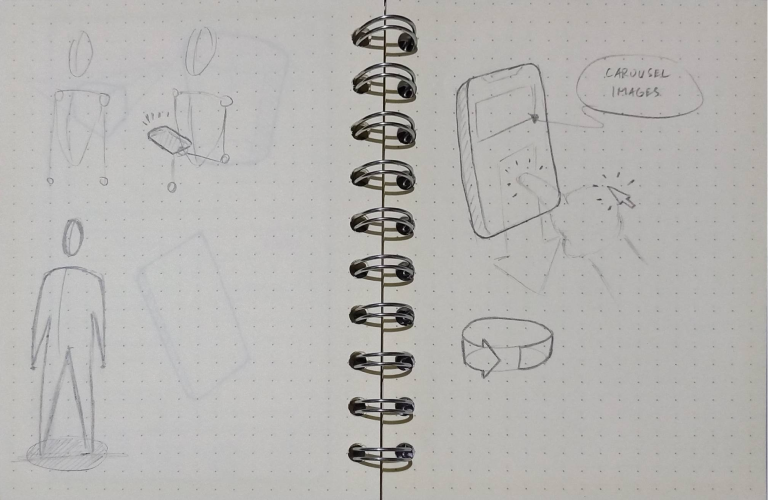 CAROUSEL
IMAGES